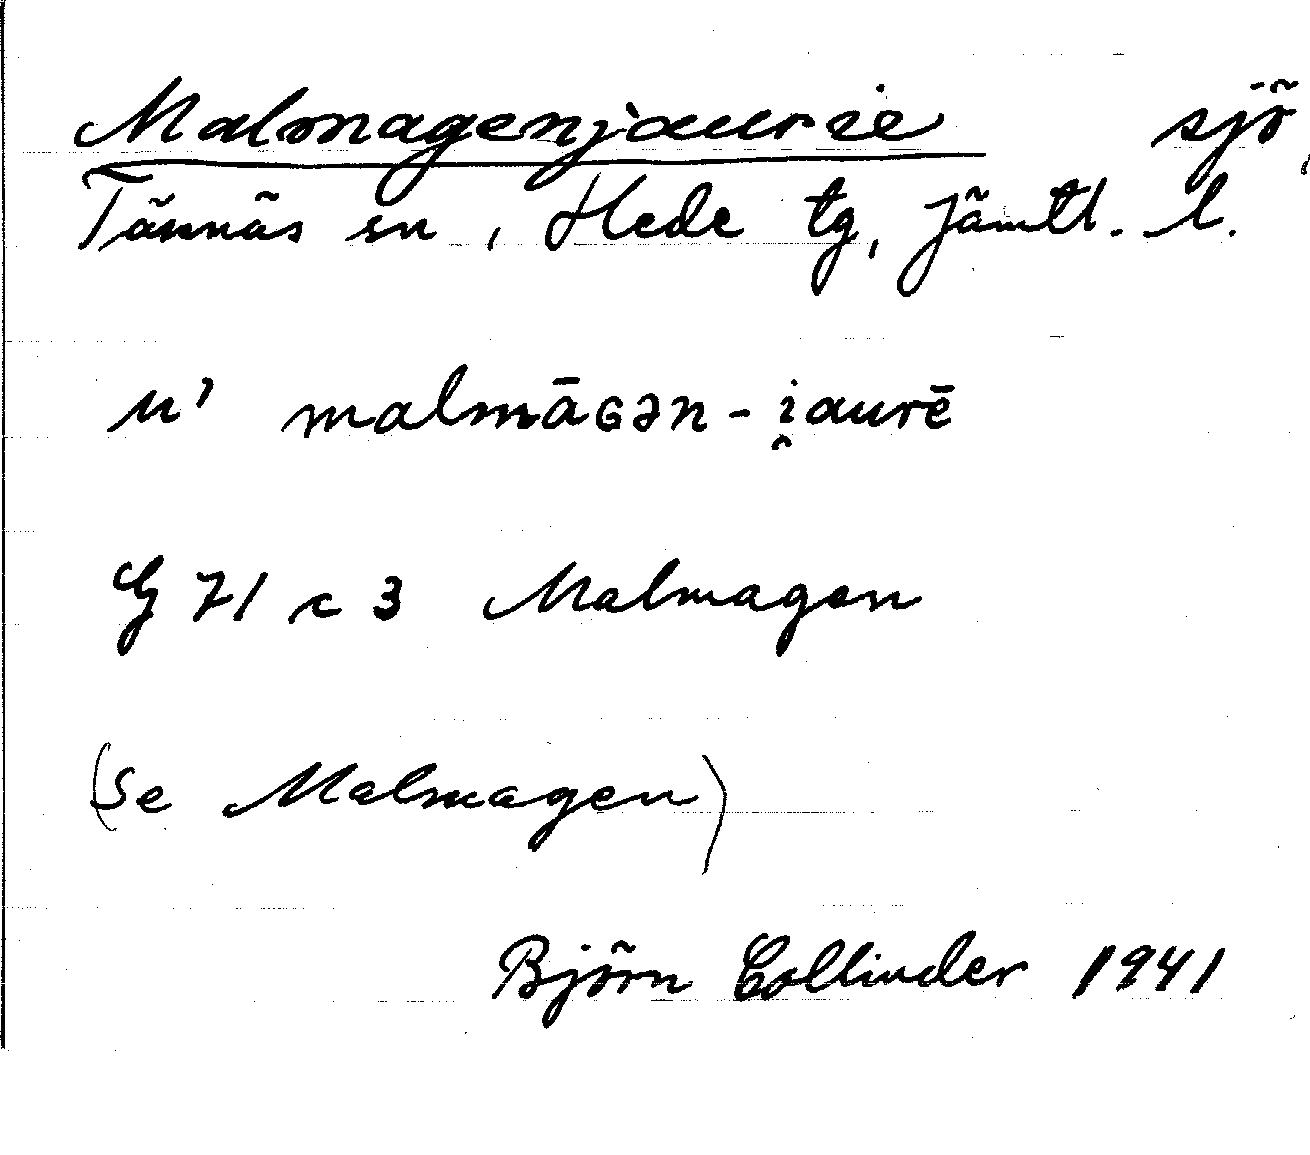 Malmagenjaurie sjö,
Tännäs sn, Hede tg, Jämtl. l.
u' malmāɢən-i̯aurē
G 71 c 3 Malmagen
(Se Malmagen)
Björn Collinder 1941